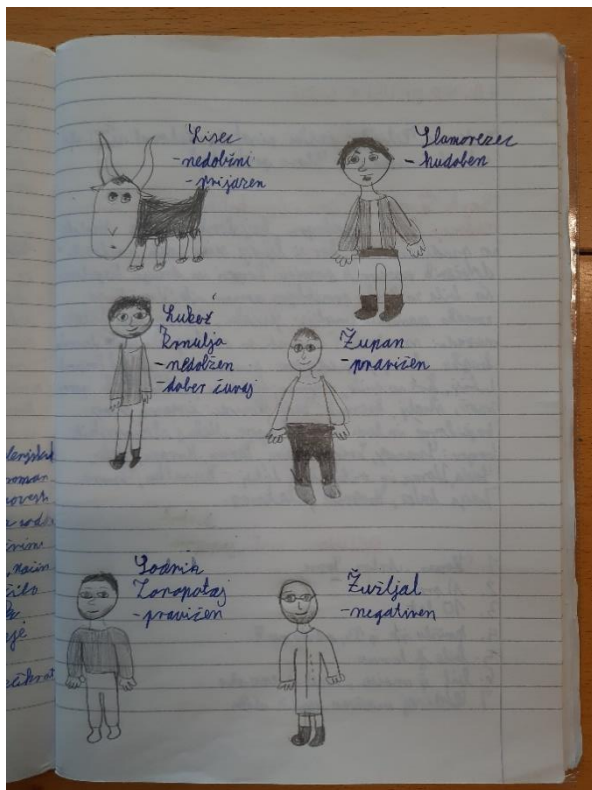 Lisec
-nedolžni
-prijazen
Slamorezec
- hudoben
Lukež
Drnulja
- nedolžen
-dober čuvaj
Župan
-pravičen
Sodnik
-pravičen
Žužljal
-negativen
roman